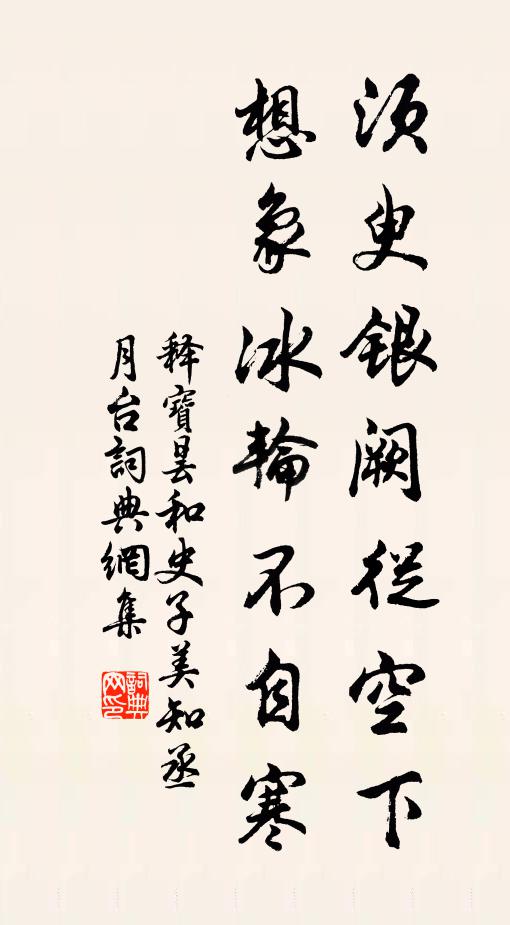 須臾銀闕從空下
想象冰輪不自寒
釋寶曇和史子美知丞
月台詞典網集
詞典
网印